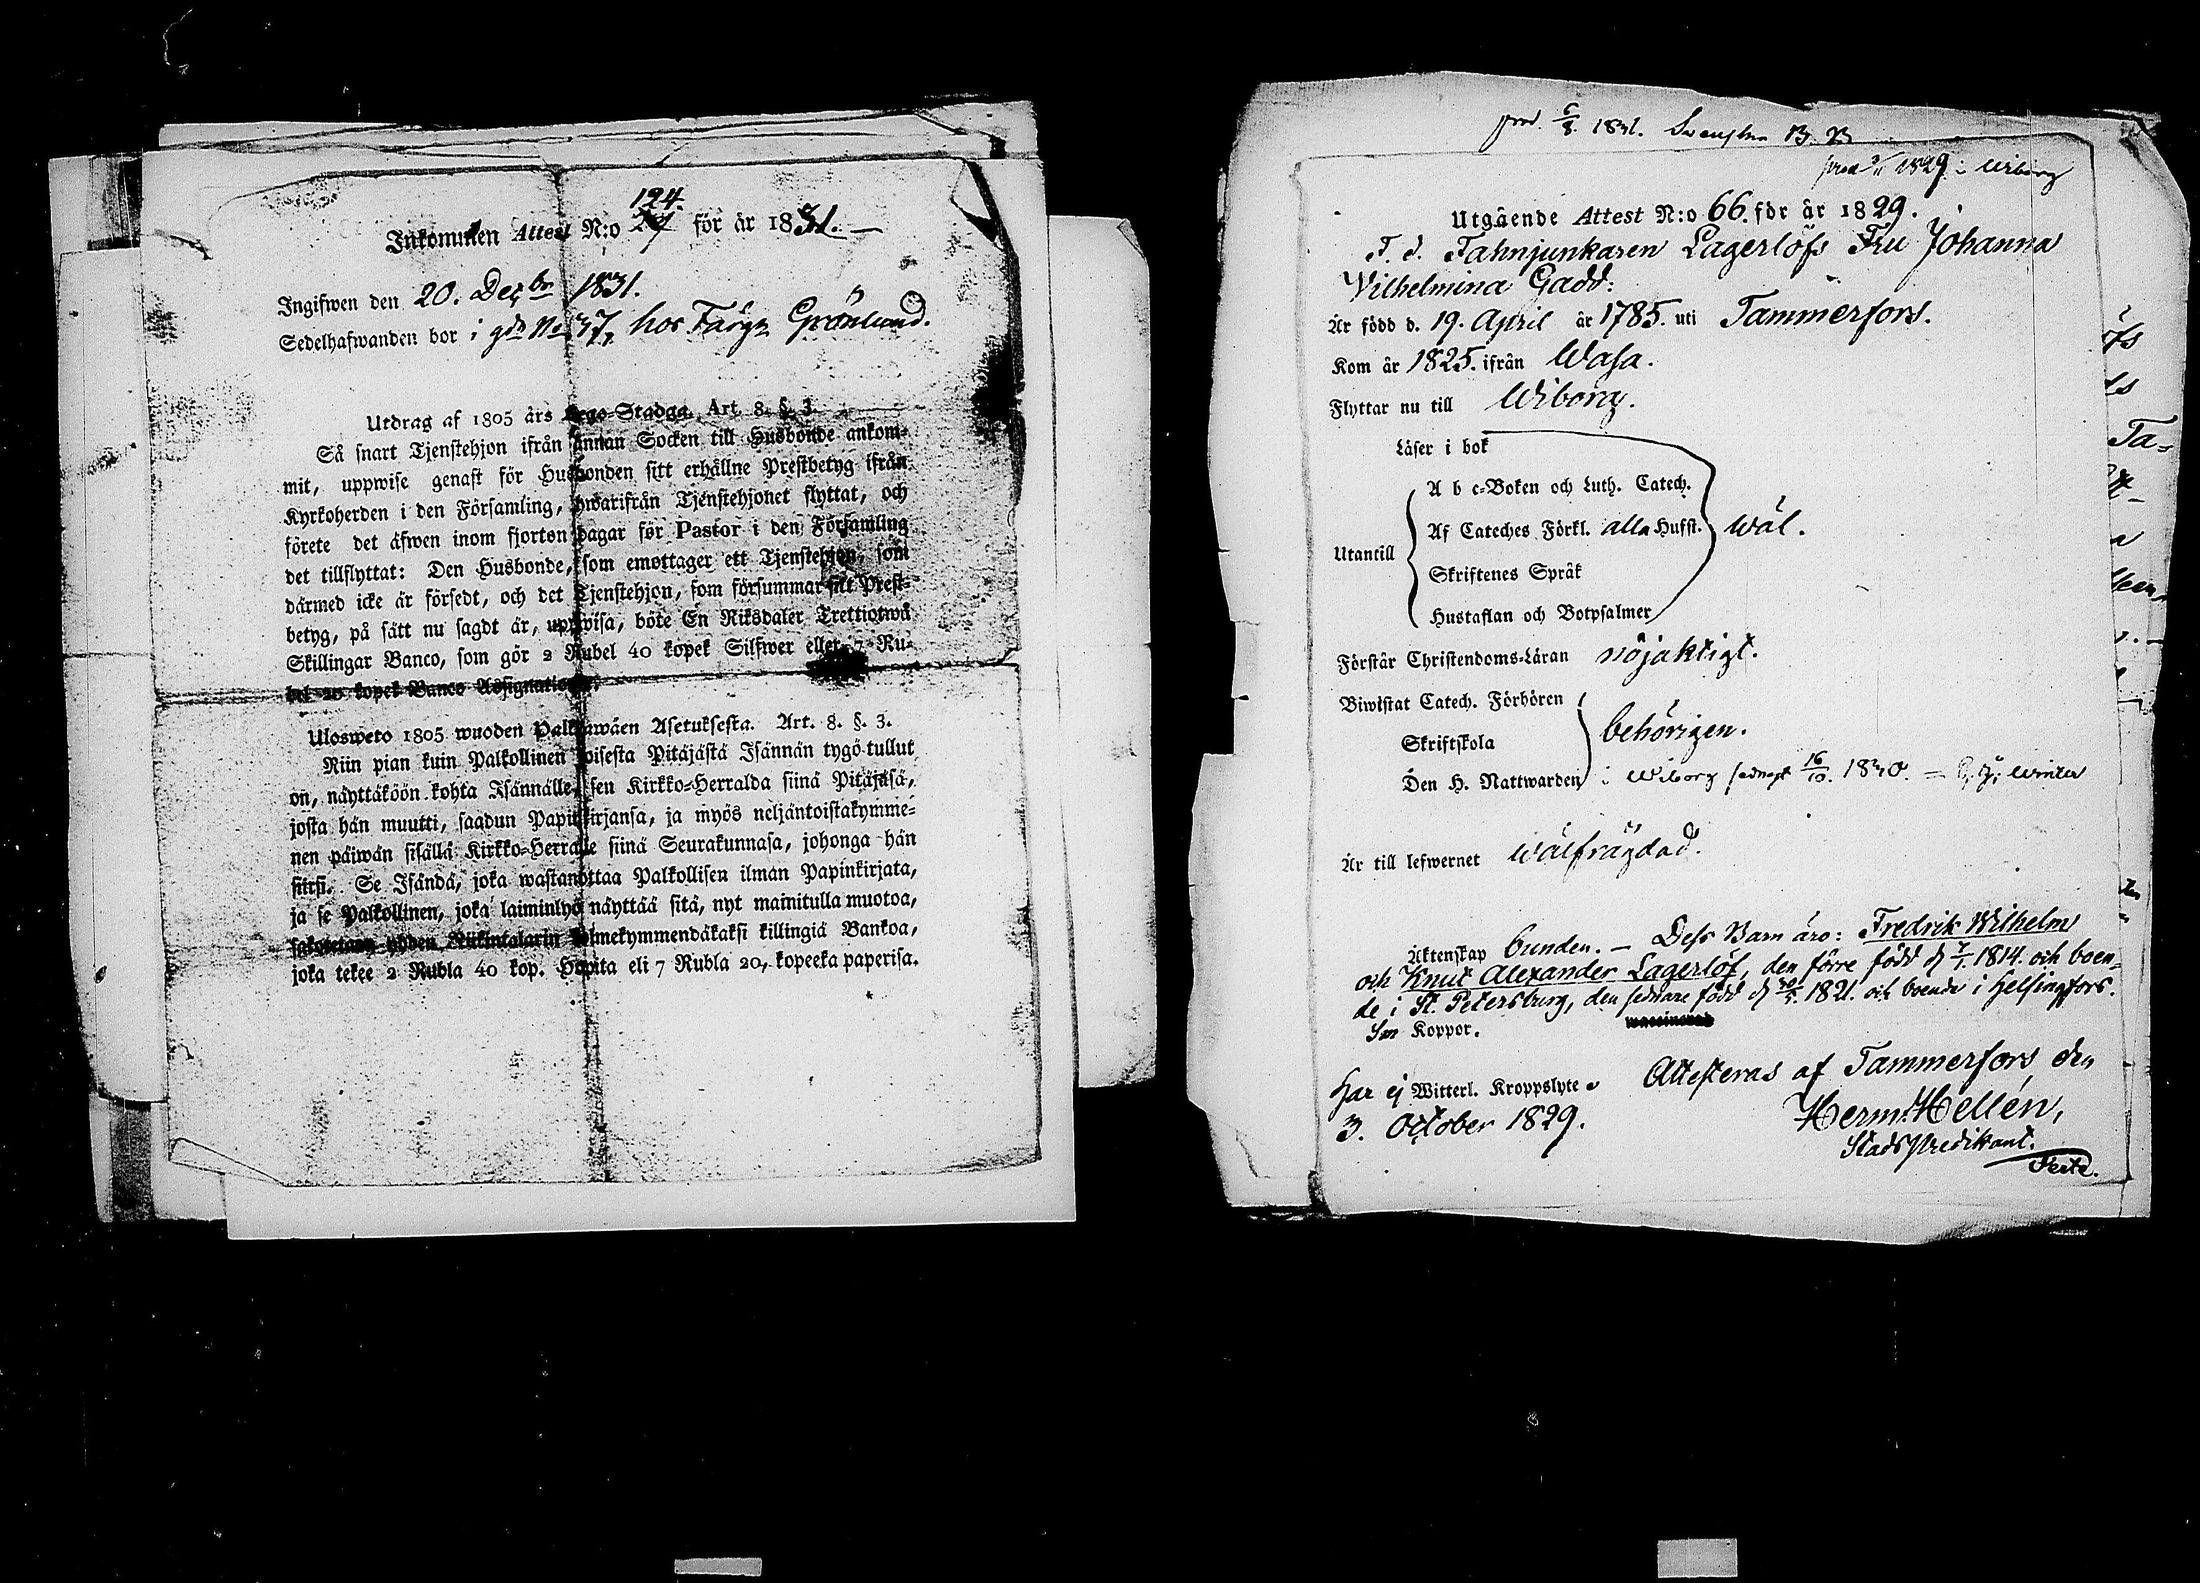 124.
Inkommen Attest N:o 29 för år 1831. —
Ingifwen den 20. Decbr 1831.
Sedelhafwanden bor i gdn No 37, hos Färg. Grönlund.
Utdrag af 1805 års Lego-Stadga, Art. 8. §. 3.
Så snart Tjenstehjon ifrån annan Socken till Husbonde ankom-
mit, uppwise genast för Husbonden sitt erhållne Prestbetyg ifrån
Kyrkoherden i den Församling, hwarifrån Tjenstehjonet flyttat, och
förete det äfwen inom fjorton dagar för Pastor i den Församling
det tillflyttat: Den Husbonde, som emottager ett Tjenstehjon, som
därmed icke är försedt, och det Tjenstehjon, som försummar sitt Prest-
betyg, på sätt nu sagdt är, uppwisa, böte En Riksdaler Trettiotwå
Skillingar Banco, som gör 2 Rubel 40 kopek Silfwer eller 7 Ru-
bel 20 kopek Banco Assignationer.
Ulosweto 1805 wuoden Palkkawäen Asetuksesta. Art. 8. §. 3.
Niin pian kuin Palkollinen toisesta Pitäjästä Isännän tygö tullut
on, näyttäköön kohta Isännälle, sen Kirkko-Herralda siinä Pitäjäsä,
josta hän muutti, saadun Papinkirjansa, ja myös neljäntoistakymme-
nen päiwän sisällä Kirkko-Herralle siinä Seurakunnasa, johonga hän
siirsi. Se Isändä, joka wastanottaa Palkollisen ilman Papinkirjata,
ja se Palkollinen, joka laiminlyö näyttää sitä, nyt mainitulla muotoa,
sakotetaan yhden Riikintalarin kolmekymmendäkaksi killingiä Bankoa,
joka tekee 2 Rubla 40 kop. Hopita eli 7 Rubla 20, kopeeka paperisa.
prod. 6/8. 1831. B. B
prod 1829 i Wiborg
Utgående Attest N:o 66. för år 1829.
F. d. Fahnjunkaren Lagerlöfs Fru Johanna
Wilhelmina Gadd:
Är född d. 19. April år 1785. uti Tammerfors.
Kom år 1825. ifrån Wasa.
Flyttar nu till Wiborg.
Läser i bok
A b c-Boken och Luth. Catech.
Utantill Af Cateches Förkl. alla Hufst. wäl.
Skriftenes Språk
Hustaflan och Botpsalmer
Förstår Christendoms-Läran nöjaktigt.
Biwistat Catech. Förhören
Skriftskola behörigen.
Den H. Nattwarden i Wiborg sednast 16/10. 1830. Winter
Är till lefwernet wälfrägdad.
Äktenskap bunden. — Dess Barn äro: Fredrik Wilhelm
och Knut Alexander Lagerlöf, den förre född d 7/1. 1814. och boen-
de i St. Petersburg, den sednare född d 30/5. 1821. och boende i Helsingfors.
Koppor.
Har ej Witterl. Kroppslyte. Attesteras af Tammerfors den
3. October 1829.
Herm. Hellén,
Stads Predikant.